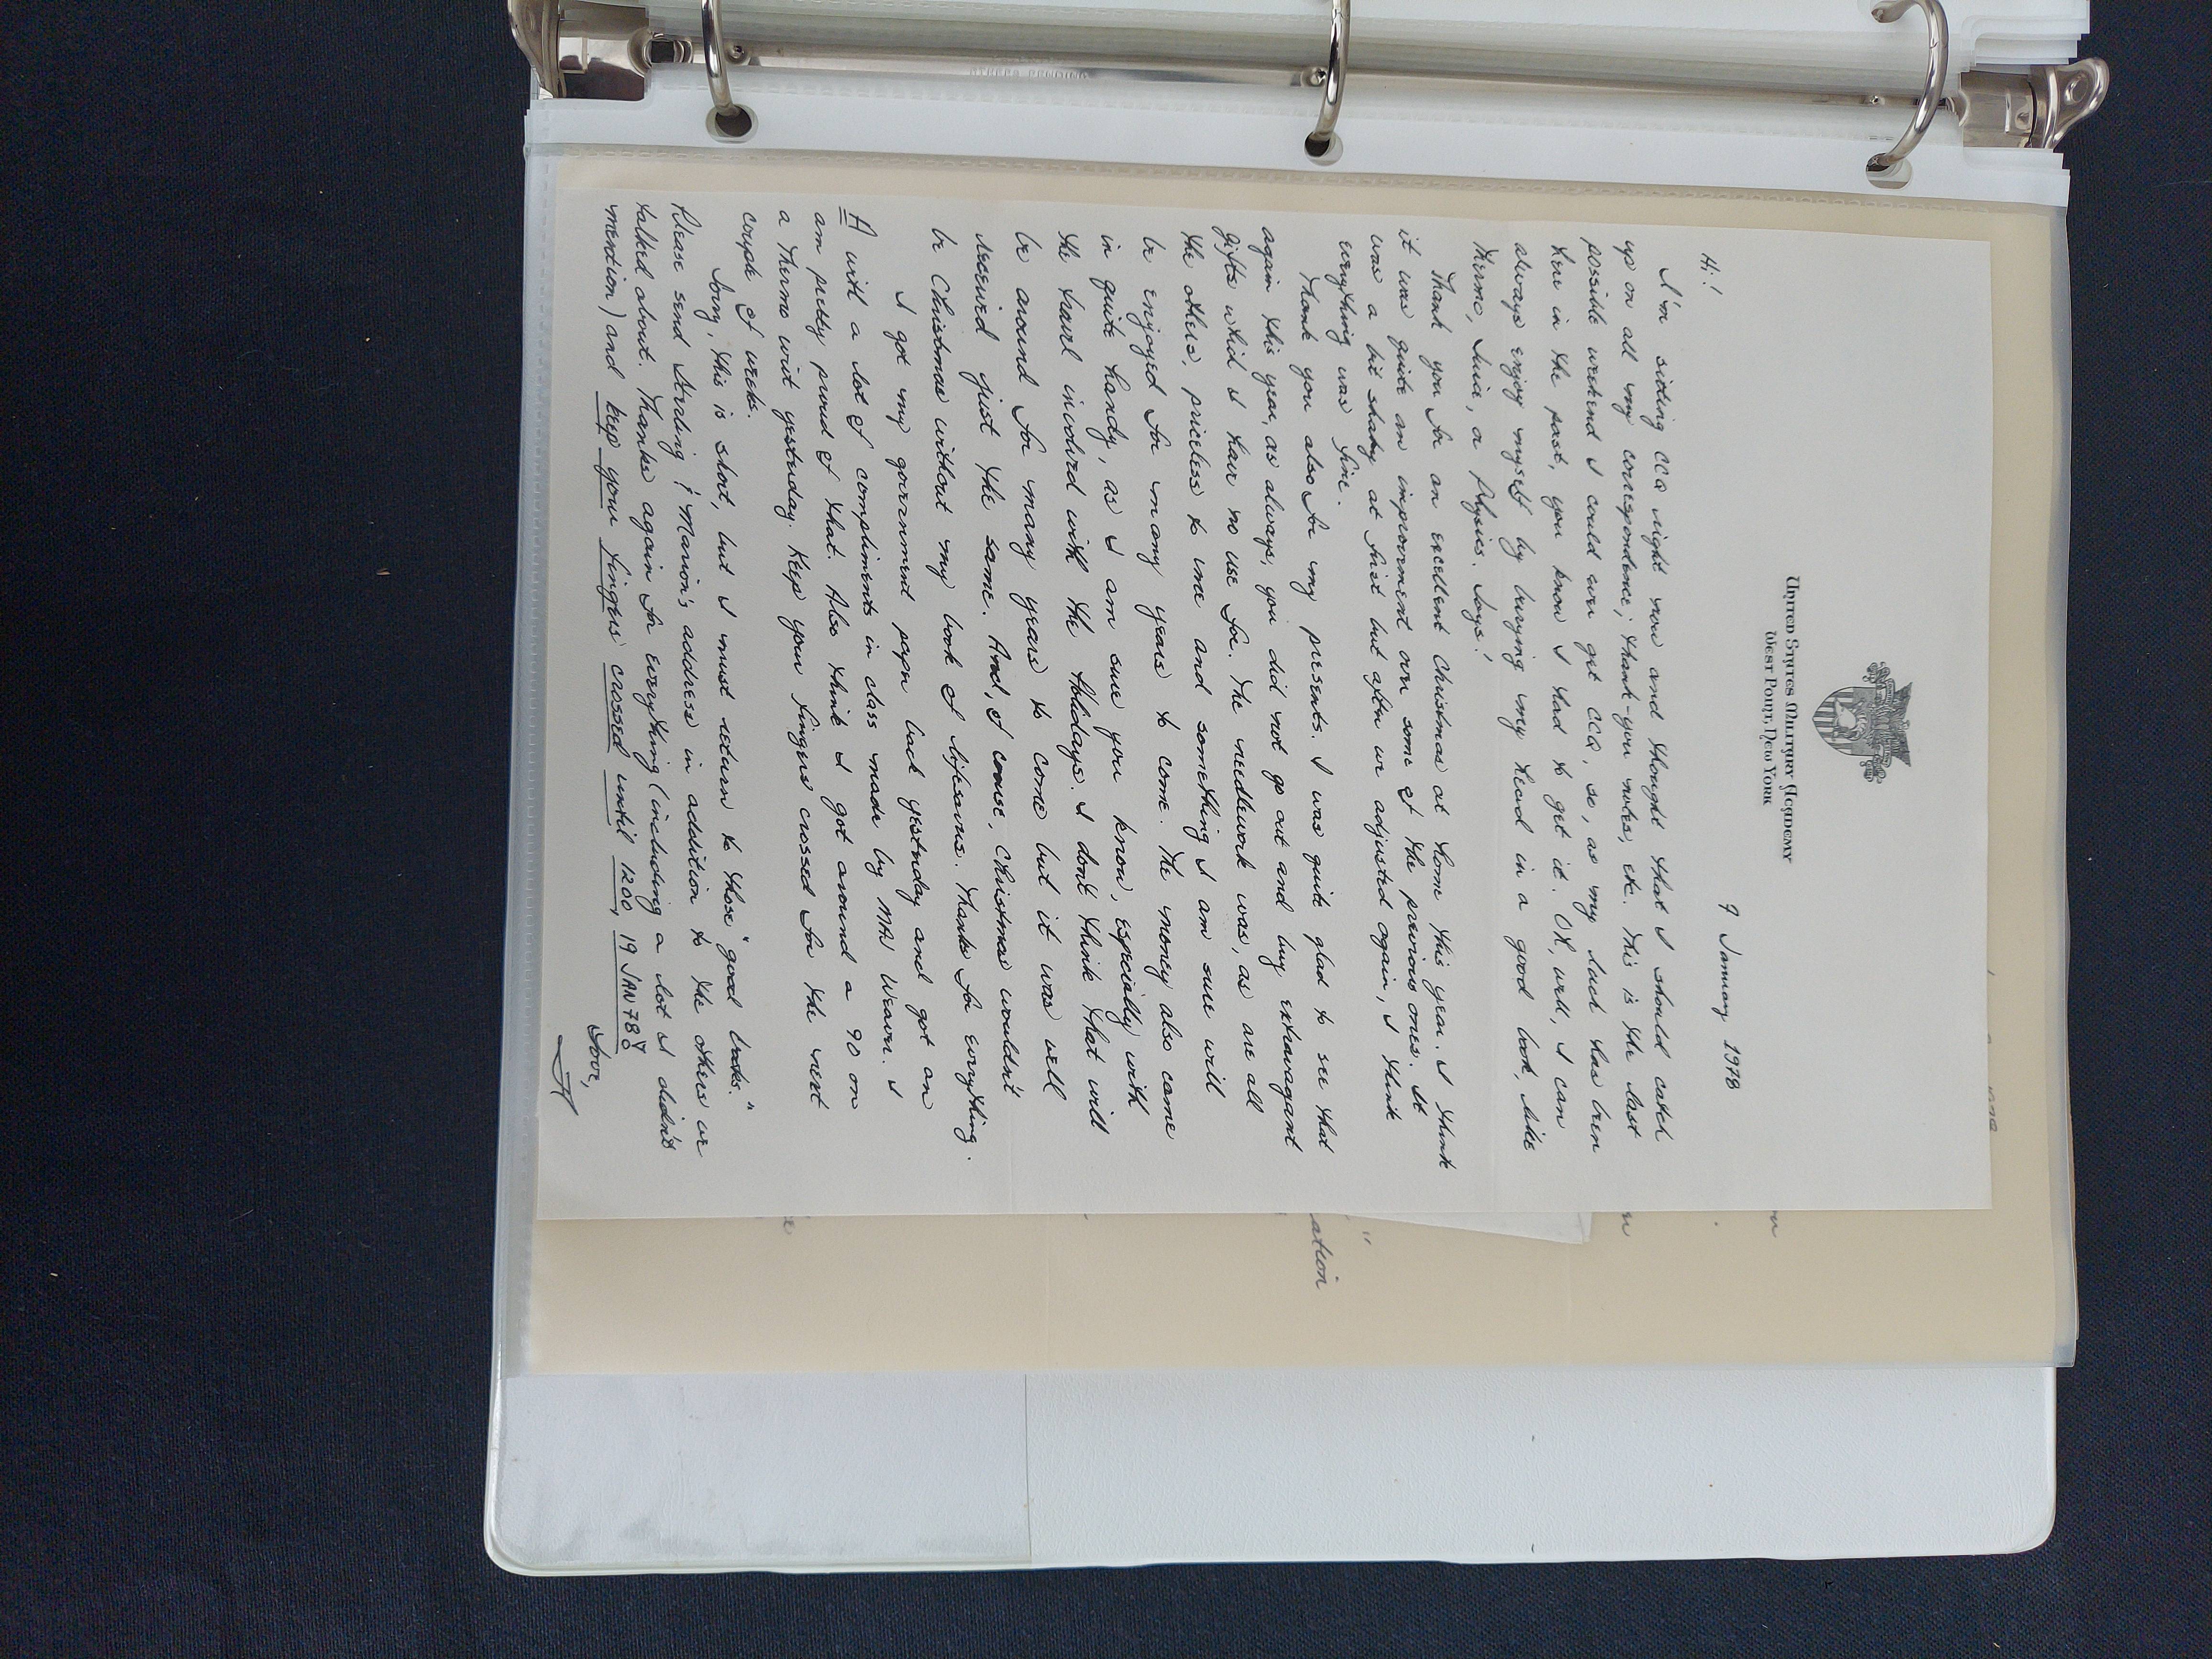 United States Military Academy
West Point, New York
9 January 1978
Hi!
I'm sitting CCQ right now and thought that I should catch
up on all my correspondence; thank-you notes, etc. This is the last
possible weekend I could ever get CCQ, so, as my luck has been
here in the past, you know I had to get it. Oh, well, I can
always enjoy myself by burying my head in a good book, like
Thermo, Juice, or Physics. Joys!
Thank you for an excellent Christmas at home this year. I think
it was quite an improvement over some of the previous ones. It
was a bit shaky at first but after we adjusted again, I think
everything was fine.
Thank you also for my presents. I was quite glad to see that
again this year, as always, you did not go out and buy extravagant
gifts which I have no use for. The needlework was, as are all
the others, priceless to me and something I am sure will
be enjoyed for many years to come. The money also came
in quite handy, as I am sure you know, especially with
the travel involved with the Holidays. I don't think that will
be around for many years to come but it was well
received just the same. And, of course, Christmas wouldn't
be Christmas without my book of lifesavers. Thanks for everything.
I got my government paper back yesterday and got an
A with a lot of compliments in class made by MAJ Weaver. I
am pretty proud of that. Also think I got around a 90 on
a Thermo writ yesterday. Keep your fingers crossed for the next
couple of weeks.
Sorry, this is short, but I must return to those "good books."
Please send Sterling & Marion's address in addition to the others we
talked about. Thanks again for everything (including a lot I didn't
mention) and keep your fingers crossed until 1200, 19 JAN 78!!
Love,
ation